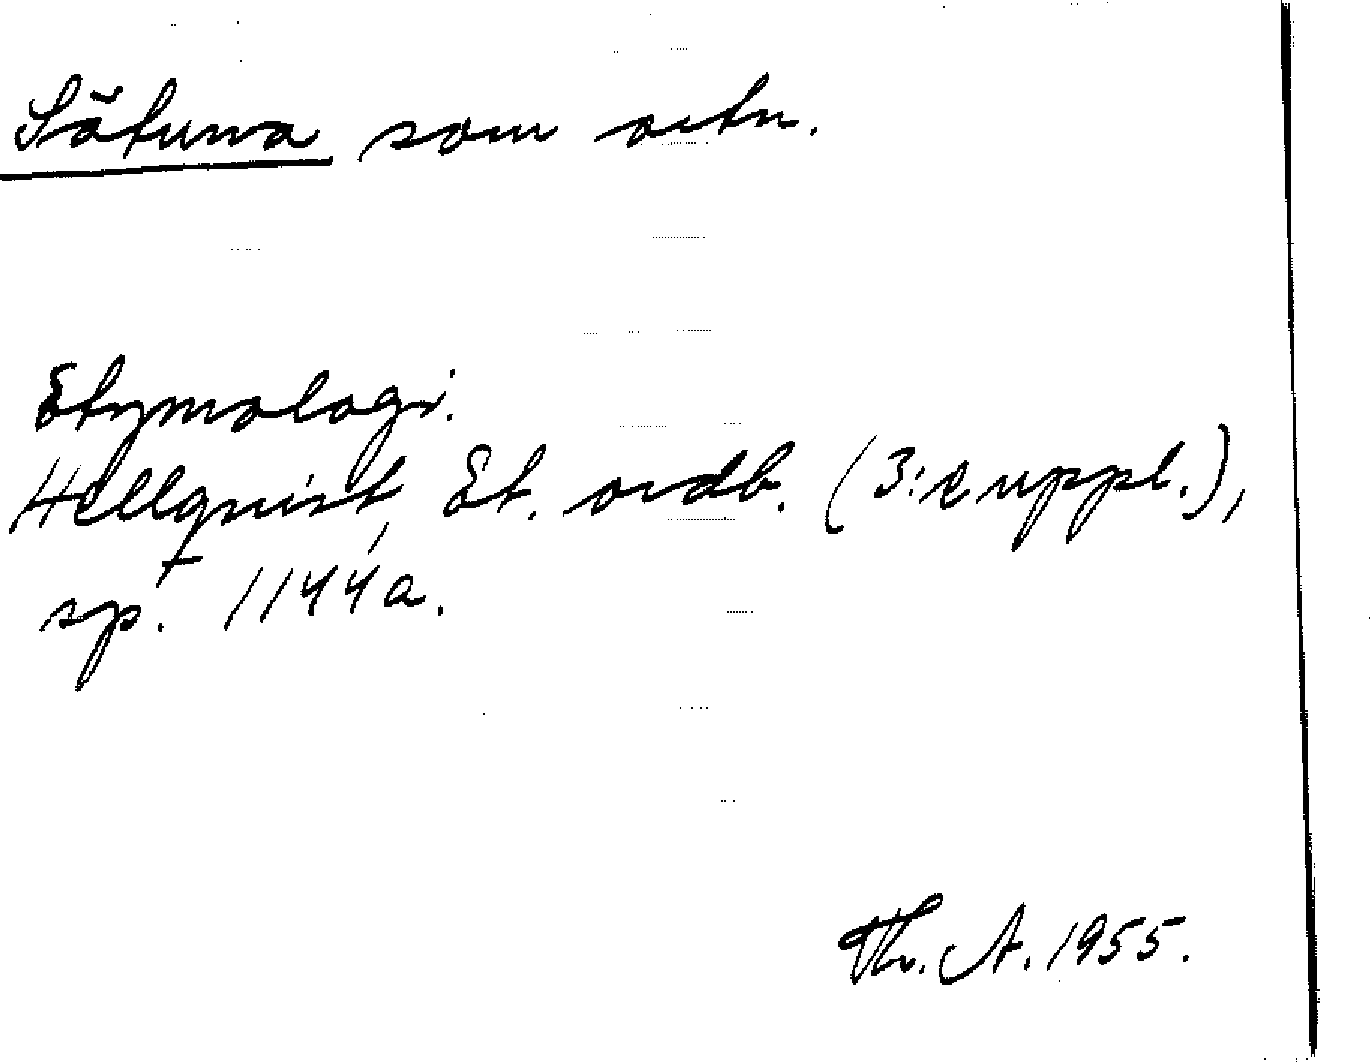 Sätuna som ortn.
Etymologi.
Hellquist, Et. ordb. (3:e uppl.),
sp. 1144a.
Th. A. 1955.